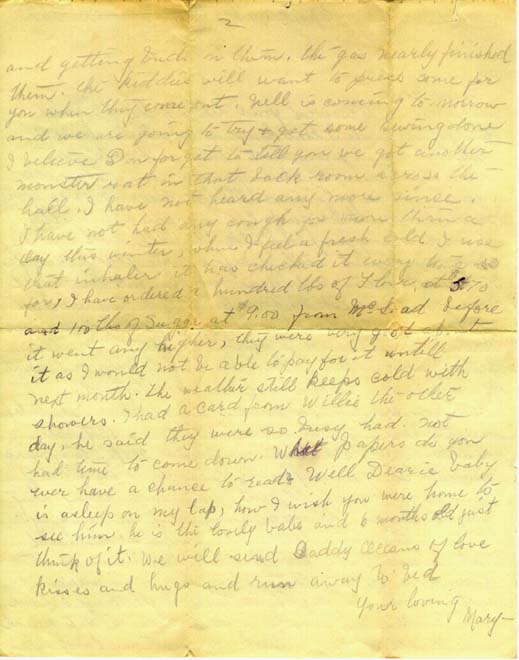 2
and getting buds on them. the gas nearly finished
them. the kiddies will want to press some for
you when they come out. Nell is coming to-morrow
and we are going to try & get some sewing done
I believe I forget to tell you we got another
monster rat in that back room across the
hall. I have not heard any more since.
I have not had any cough for more than a
day this winter, when I feel a fresh cold I use
that inhaler it has checked it every time so
far, I have ordered a hundred lbs of Flour at
and 100 lbs of Sugar at $9.00 from before
it went any higher, they were very good about
it as I would not be able to pay for it untill
next month. the weather still keeps cold with
showers. I had a card from Willie the other
day, he said they were so busy had not
had time to come down. What papers do you
ever have a chance to read? Well Dearie baby
is asleep on my lap, how I wish you were home to
see him he is the lovely babe and 6 months old just
think of it. We will send Daddy Oceans of love
kisses and hugs and run away to bed
Your loving
Mary-